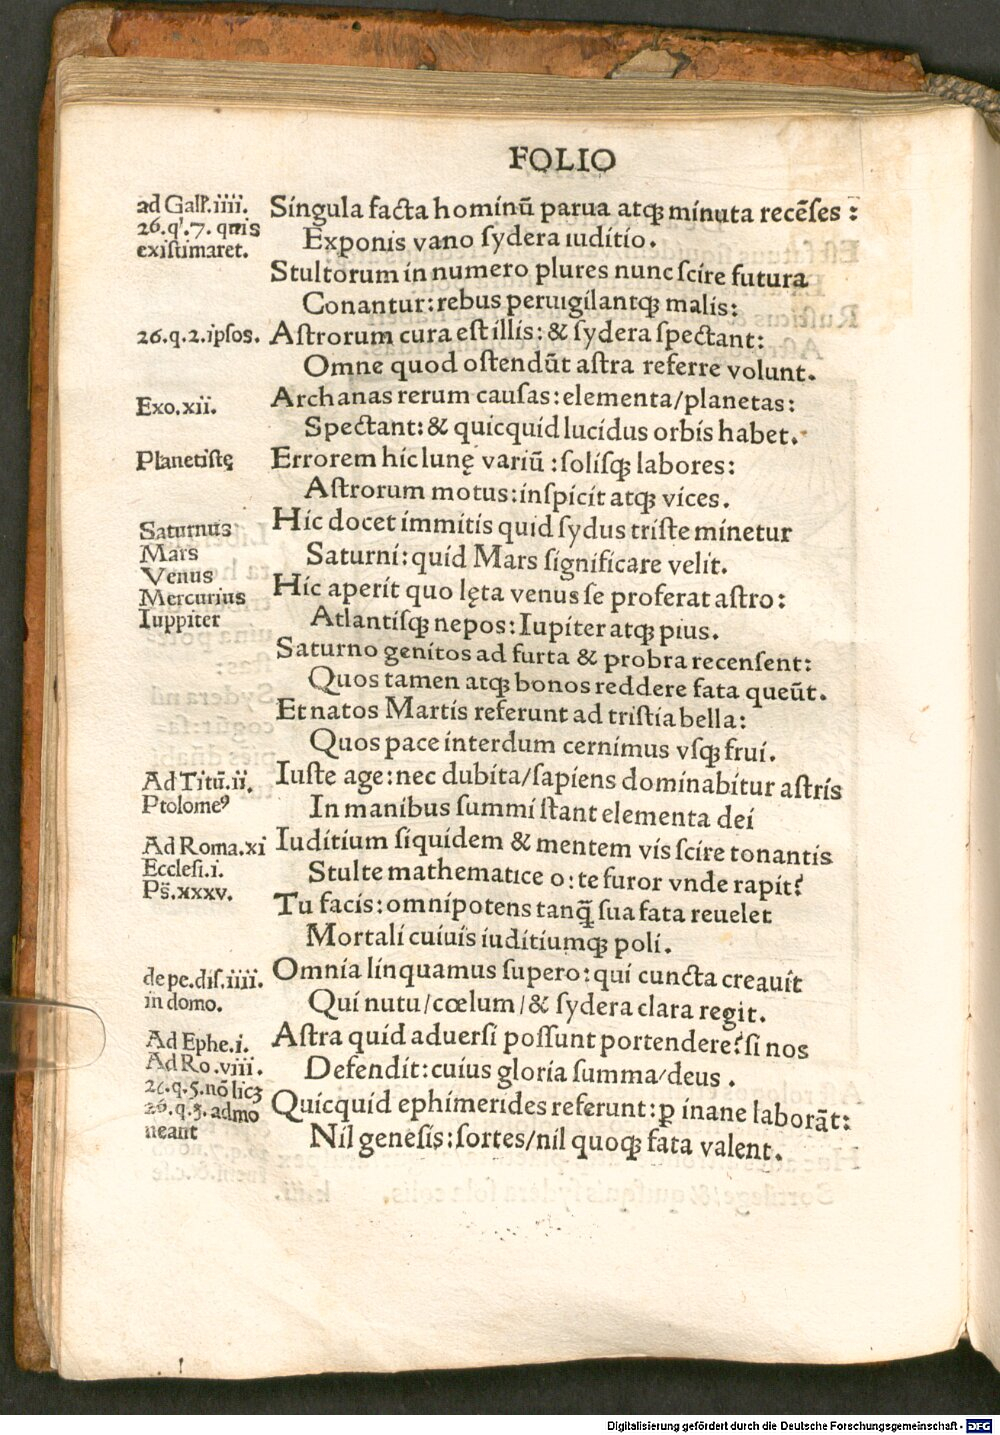 FOLIO
ad Gall'.iiii.
26.q'.7. quis
existimaret.
Singula facta hominū parua atqꝫ minuta recēses :
Exponis vano sydera iuditio.
Stultorum in numero plures nunc scire futura
Conantur: rebus peruigilantqꝫ malis:
26.q.2.ipsos.
Astrorum cura est illis: & sydera spectant:
Omne quod ostendūt astra referre volunt.
Exo.xii.
Archanas rerum causas: elementa/planetas:
Spectant: & quicquid lucidus orbis habet.
Planetistę
Errorem hic lunę variū : solisqꝫ labores:
Astrorum motus: inspicit atqꝫ vices.
Saturnus
Mars
Venus
Mercurius
Iuppiter
Hic docet immitis quid sydus triste minetur
Saturni: quid Mars significare velit.
Hic aperit quo lęta venus se proferat astro:
Atlantisqꝫ nepos: Iupiter atqꝫ pius.
Saturno genitos ad furta & probra recensent:
Quos tamen atqꝫ bonos reddere fata queūt.
Et natos Martis referunt ad tristia bella:
Quos pace interdum cernimus vsqꝫ frui.
Ad Titū.ii.
Ptolomeꝰ
Iuste age: nec dubita/sapiens dominabitur astris
In manibus summi stant elementa dei
Ad Roma.xi
Ecclesi.i.
Ps̄.xxxv.
Iuditium siquidem & mentem vis scire tonantis
Stulte mathematice o: te furor vnde rapit?
Tu facis: omnipotens tanq̄ sua fata reuelet
Mortali cuiuis iuditiumqꝫ poli.
de pe.dis.iiii.
in domo.
Omnia linquamus supero: qui cuncta creauit
Qui nutu/cœlum/& sydera clara regit.
Ad Ephe.i.
Ad Ro.viii.
26.q.5.nō licꝫ
26.q.3.admo
neant
Astra quid aduersi possunt portendere? si nos
Defendit: cuius gloria summa/deus .
Quicquid ephimerides referunt: ꝑ inane laborāt:
Nil genesis: sortes/nil quoqꝫ fata valent.
Digitalisierung gefördert durch die Deutsche Forschungsgemeinschaft - DFG